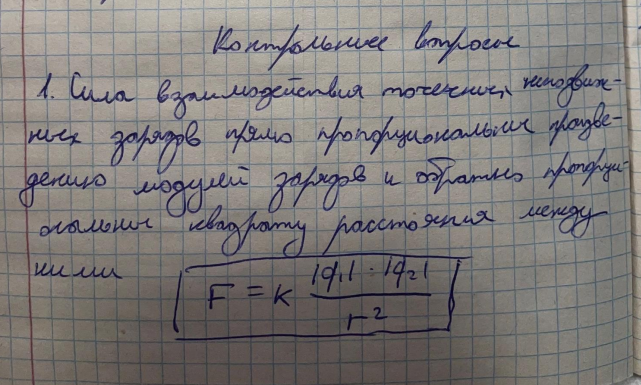 Контрольные вопросы
1. Сила взаимодействия точечных неподвиж-
ных зарядов прямо пропорциональны произве-
дению модулей зарядов и обратно пропорци-
ональны квадрату расстояния между
ними
F = k |q₁| · |q₂| / r²